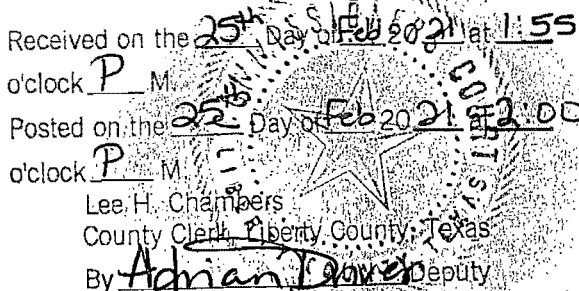 Received on the 25th Day of Feb 2021 at 1:55
o'clock P M.
Posted on the 25th Day of Feb 2021 at 2:00
o'clock P M.
Lee H. Chambers
County Clerk, Liberty County, Texas
By Adrian Deputy